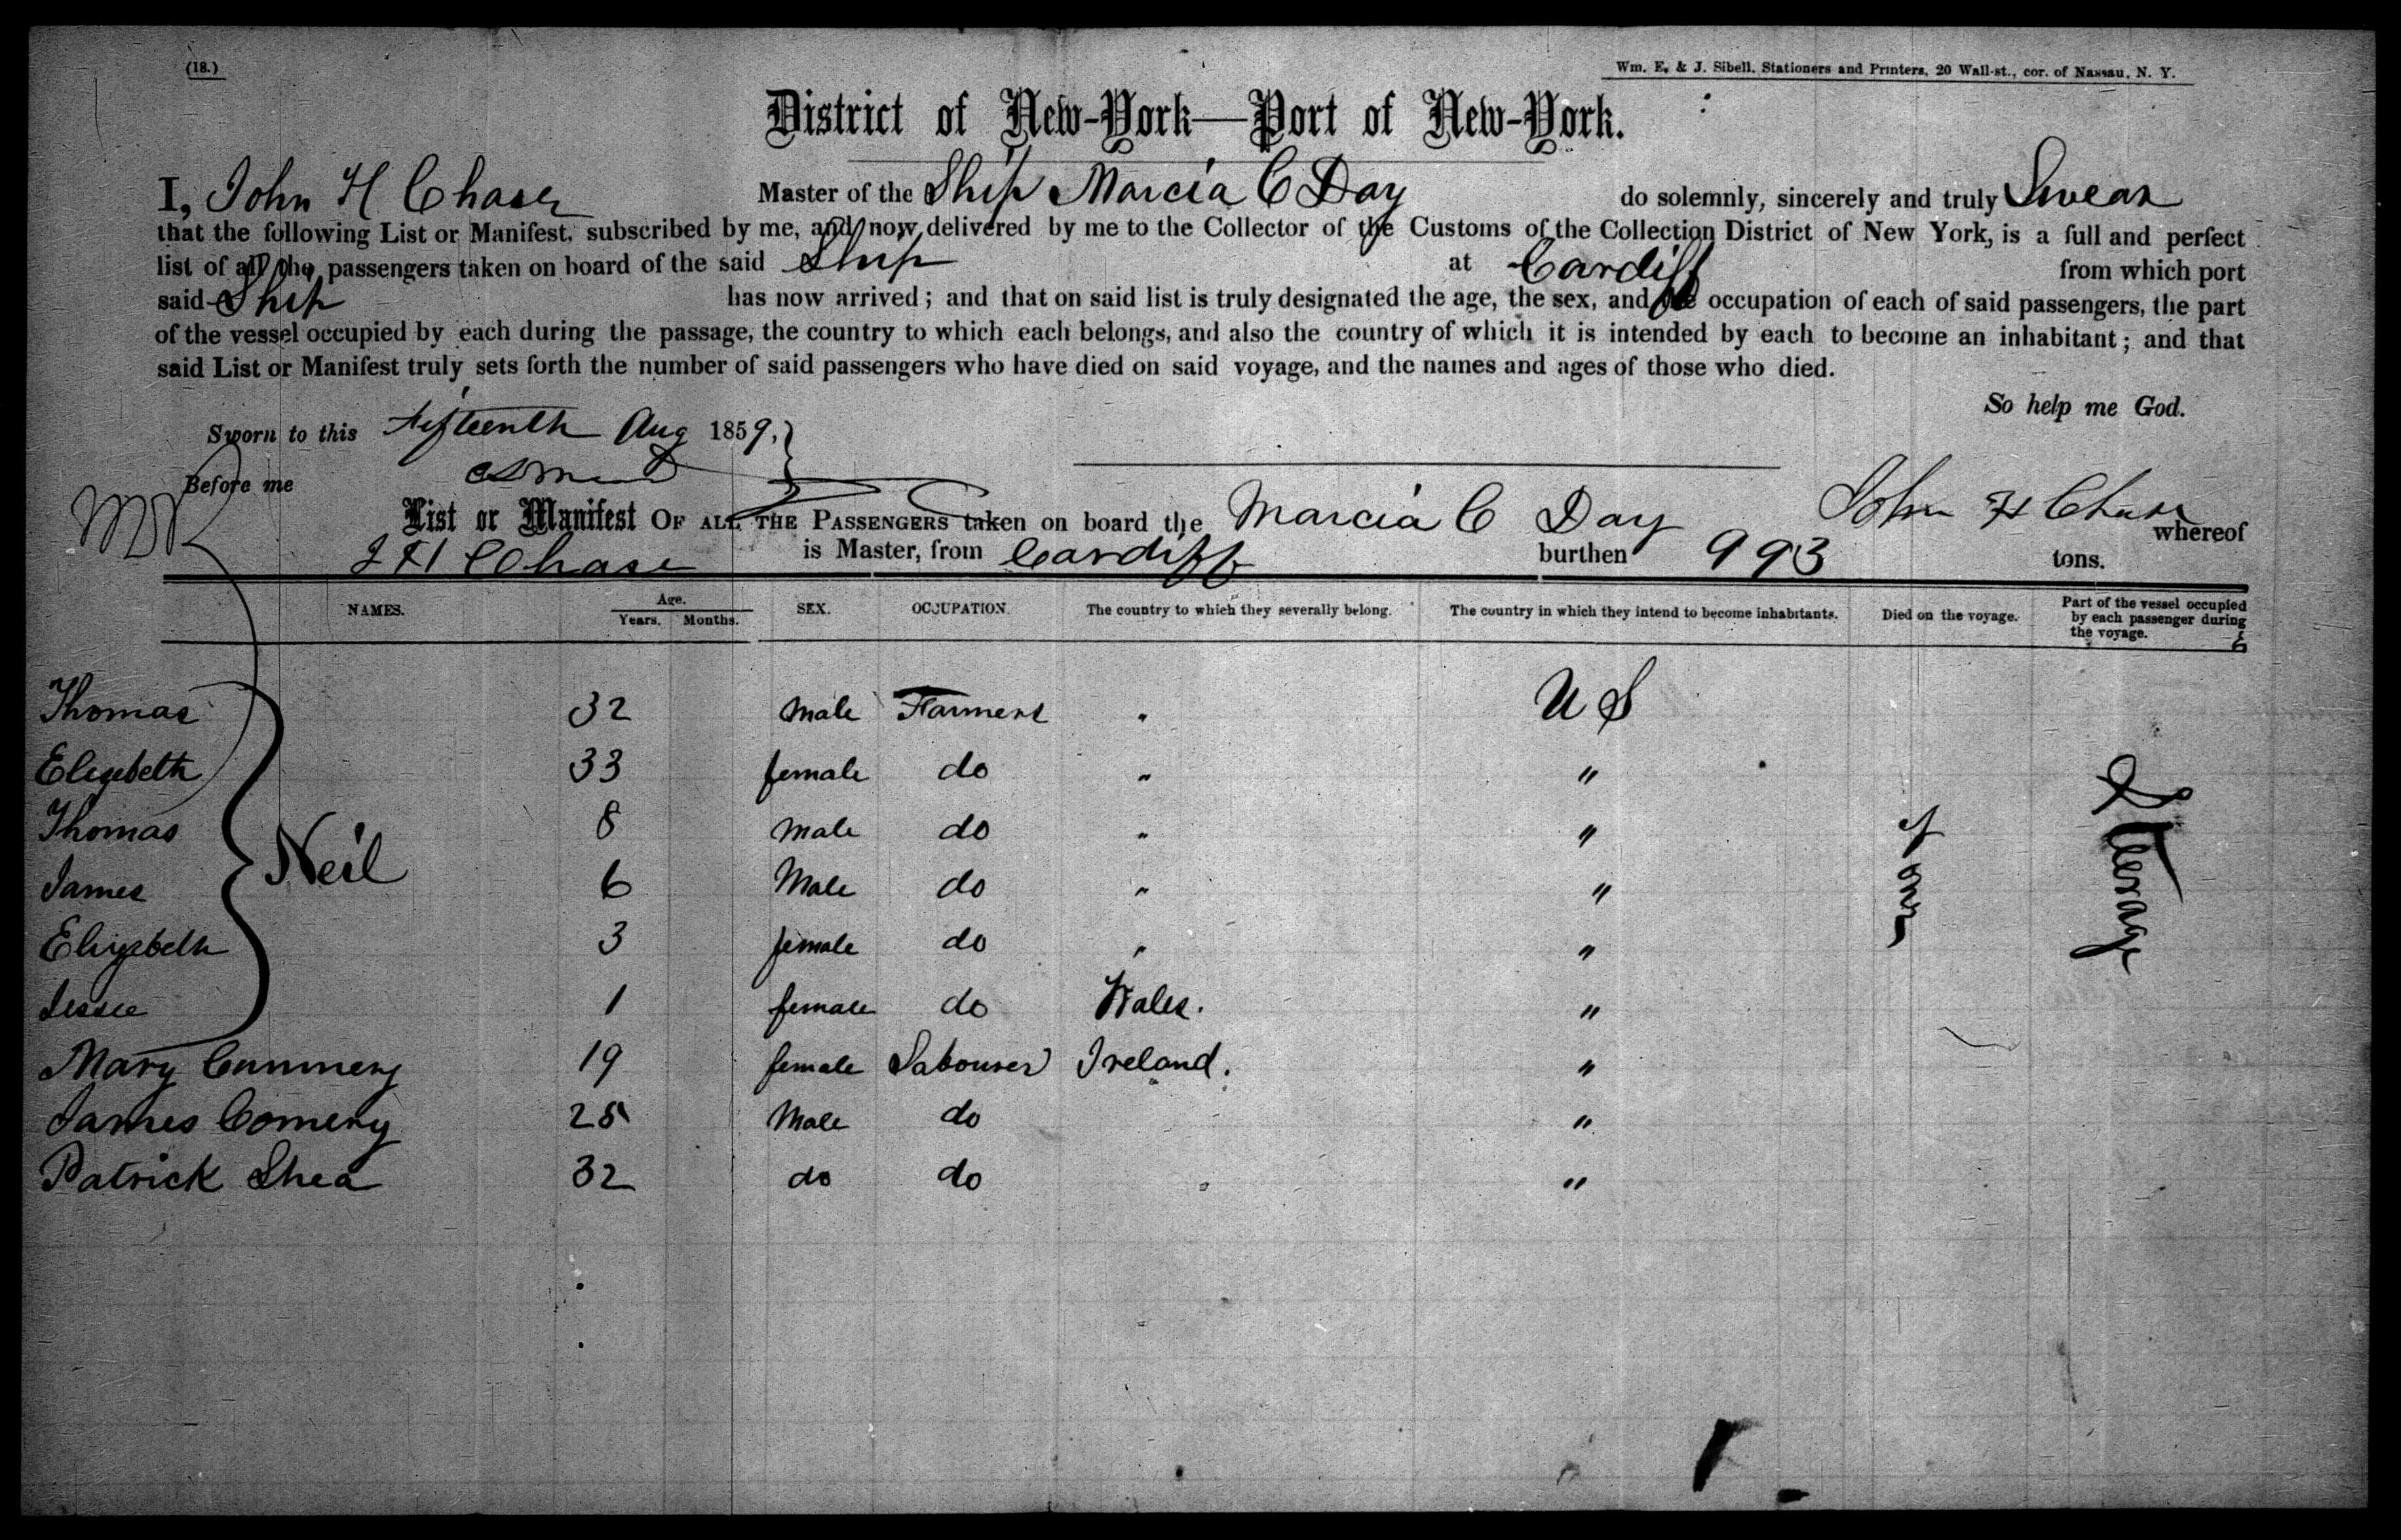 (18.)
Wm. E. & J. Sibell, Stationers and Printers, 20 Wall-st., cor. of Nassau, N. Y.
District of New-York—Port of New-York.
I, John H Chase Master of the Ship Marcia C Day do solemnly, sincerely and truly Swear
that the following List or Manifest, subscribed by me, and now delivered by me to the Collector of the Customs of the Collection District of New York, is a full and perfect
list of all the passengers taken on board of the said Ship at Cardiff from which port
said Ship has now arrived; and that on said list is truly designated the age, the sex, and the occupation of each of said passengers, the part
of the vessel occupied by each during the passage, the country to which each belongs, and also the country of which it is intended by each to become an inhabitant; and that
said List or Manifest truly sets forth the number of said passengers who have died on said voyage, and the names and ages of those who died.
So help me God.
Sworn to this fifteenth Aug 1859,
Before me
John H Chase
List or Manifest OF ALL THE PASSENGERS taken on board the Marcia C Day whereof
J H Chase is Master, from Cardiff burthen 993 tons.
NAMES. Age. Years. Months. SEX. OCCUPATION. The country to which they severally belong. The country in which they intend to become inhabitants. Died on the voyage. Part of the vessel occupied by each passenger during the voyage.
Thomas 32 Male Farmers " U S
Elizebeth 33 female do " "
Thomas 8 Male do " "
Neil
James 6 Male do " "
Elizebeth 3 female do " "
Jessie 1 female do Wales. "
Mary Cummery 19 female Labourer Ireland. "
James Comery 25 Male do "
Patrick Shea 32 do do "
Steerage